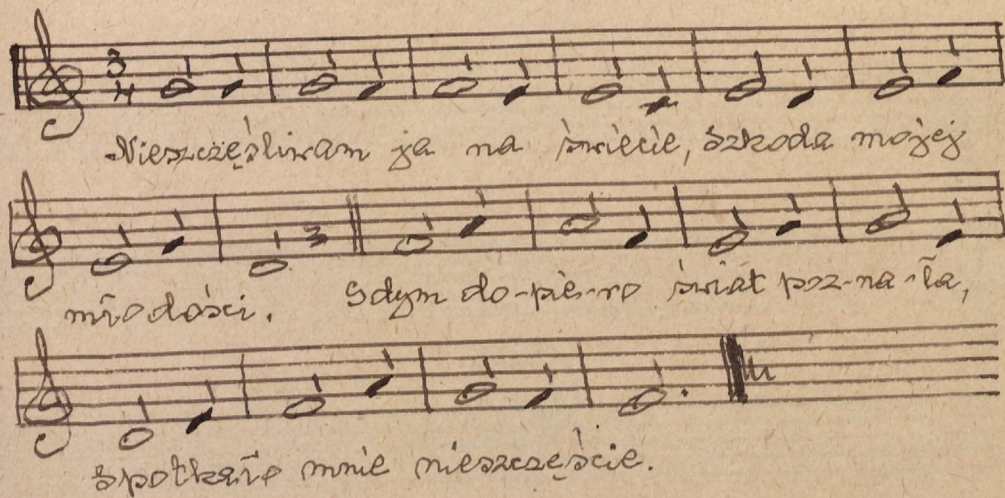 3
4
Nieszczęśliwam ja na świecie, szkoda mojej
młodości. Gdym do-pie-ro świat poz-na-ła,
spotkało mnie nieszczęście.